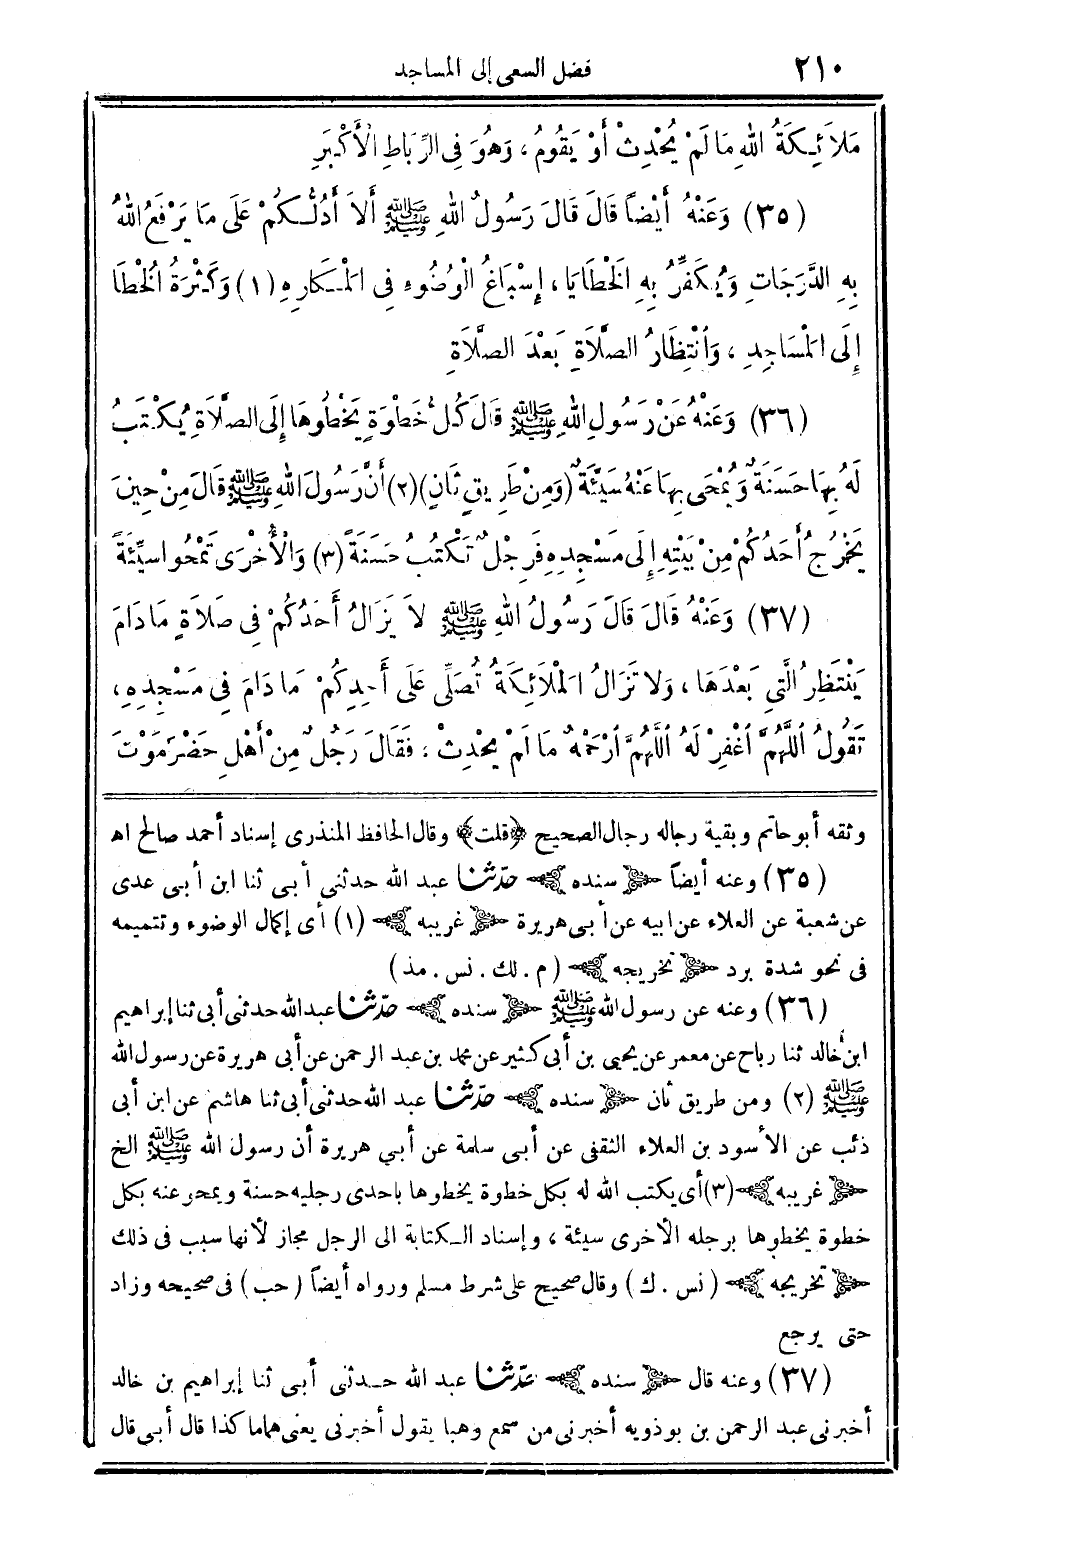 ٢١٠ فضل السعى إلى المساجد
مَلاَئِكَةُ اللهِ مَا لَمْ يُحْدِثْ أَوْ يَقُومُ، وَهُوَ فِى الرِّبَاطِ الْأَكْبَرِ
(٣٥) وَعَنْهُ أَيْضاً قَالَ قَالَ رَسُولُ اللهِ ﷺ أَلاَ أَدُلُّكُمْ عَلَى مَا يَرْفَعُ اللهُ
بِهِ الدَّرَجَاتِ وَيُكَفِّرُ بِهِ الْخَطَايَا، إِسْبَاغُ الْوُضُوءِ فِى الْمَكَارِهِ (١) وَكَثْرَةُ الْخُطَا
إِلَى الْمَسَاجِدِ، وَاَنْتِظَارُ الصَّلَاةِ بَعْدَ الصَّلَاةِ
(٣٦) وَعَنْهُ عَنْ رَسُولِ اللهِ ﷺ قَالَ كُلُّ خَطْوَةٍ يَخْطُوهَا إِلَى الصَّلَاةِ يُكْتَبُ
لَهُ بِهَا حَسَنَةٌ وَيُمْحَى بِهَا عَنْهُ سَيِّئَةٌ (وَمِنْ طَرِيقٍ ثَانٍ) (٢) أَنَّ رَسُولَ اللهِ ﷺ قَالَ مِنْ حِينَ
يَخْرُجُ أَحَدُكُمْ مِنْ بَيْتِهِ إِلَى مَسْجِدِهِ فَرِجْلٌ تَكْتُبُ حَسَنَةً (٣) وَالْأُخْرَى تَمْحُو سَيِّئَةً
(٣٧) وَعَنْهُ قَالَ قَالَ رَسُولُ اللهِ ﷺ لاَ يَزَالُ أَحَدُكُمْ فِى صَلَاةٍ مَا دَامَ
يَنْتَظِرُ الَّتِى بَعْدَهَا، وَلَا تَزَالُ الْمَلَائِكَةُ تُصَلِّى عَلَى أَحَدِكُمْ مَا دَامَ فِى مَسْجِدِهِ،
تَقُولُ اَللَّهُمَّ اَغْفِرْ لَهُ اَللَّهُمَّ اَرْحَمْهُ مَا لَمْ يُحْدِثْ، فَقَالَ رَجُلٌ مِنْ أَهْلِ حَضْرَمَوْتَ
وثقه أبو حاتم وبقية رجاله رجال الصحيح ﴿قلت﴾ وقال الحافظ المنذرى إسناد أحمد صالح اه
(٣٥) وعنه أيضاً ﴿سنده﴾ حدّثنا عبد الله حدثنى أبى ثنا ابن أبى عدى
عن شعبة عن العلاء عن ابيه عن أبى هريرة ﴿غريبه﴾ (١) أى إكمال الوضوء وتتميمه
فى نحو شدة برد ﴿تخريجه﴾ (م . لك . نس . مذ)
(٣٦) وعنه عن رسول الله ﷺ ﴿سنده﴾ حدّثنا عبد الله حدثنى أبى ثنا إبراهيم
ابن خالد ثنا رباح عن معمر عن يحيى بن أبى كثير عن محمد بن عبد الرحمن عن أبى هريرة عن رسول الله
ﷺ (٢) ومن طريق ثان ﴿سنده﴾ حدّثنا عبد الله حدثنى أبى ثنا هاشم عن ابن أبى
ذئب عن الأسود بن العلاء الثقفى عن أبى سلمة عن أبي هريرة أن رسول الله ﷺ الخ
﴿غريبه﴾ (٣) أى يكتب الله له بكل خطوة يخطوها باحدى رجليه حسنة ويمحو عنه بكل
خطوة يخطوها برجله الأخرى سيئة، وإسناد الكتابة الى الرجل مجاز لأنها سبب فى ذلك
﴿تخريجه﴾ (نس . ك) وقال صحيح على شرط مسلم ورواه أيضاً (حب) فى صحيحه وزاد
حتى يرجع
(٣٧) وعنه قال ﴿سنده﴾ حدّثنا عبد الله حدثنى أبى ثنا إبراهيم بن خالد
أخبرنى عبد الرحمن بن بوذويه أخبرنى من سمع وهبا يقول أخبرنى يعنى هماما كذا قال أبى قال